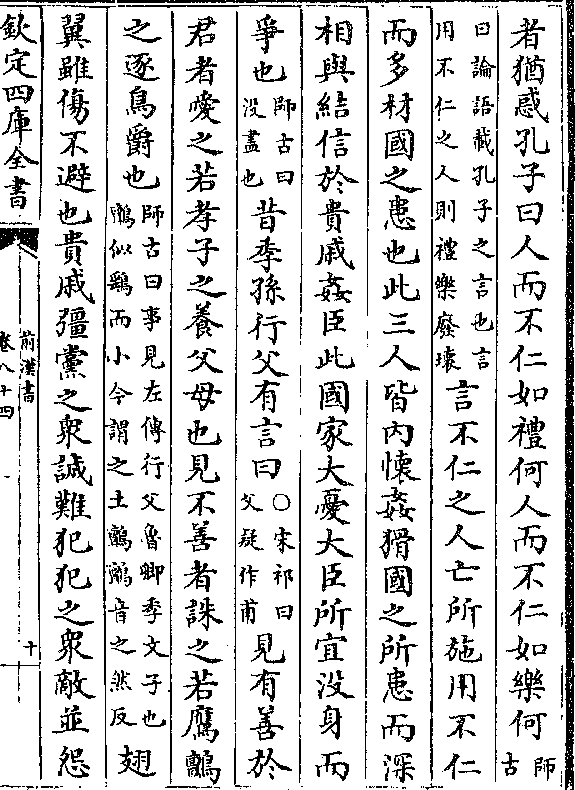 者猶惑孔子曰人而不仁如禮何人而不仁如樂何師古
曰論語載孔子之言也言用不仁之人則禮樂廢壞言不仁之人亡所施用不仁
而多材國之患也此三人皆内懷姦猾國之所患而深
相與結信於貴戚姦臣此國家大憂大臣所宜没身而
爭也師古曰没盡也昔季孫行父有言曰○宋祁曰父疑作甫見有善於
君者愛之若孝子之養父母也見不善者誅之若鷹鸇
之逐鳥爵也師古曰事見左傳行父魯卿季文子也鸇似鷂而小今謂之土鸇鸇音之然反翅
翼雖傷不避也貴戚彊黨之衆誠難犯犯之衆敵並怨
欽定四庫全書
前漢書
卷八十四
十